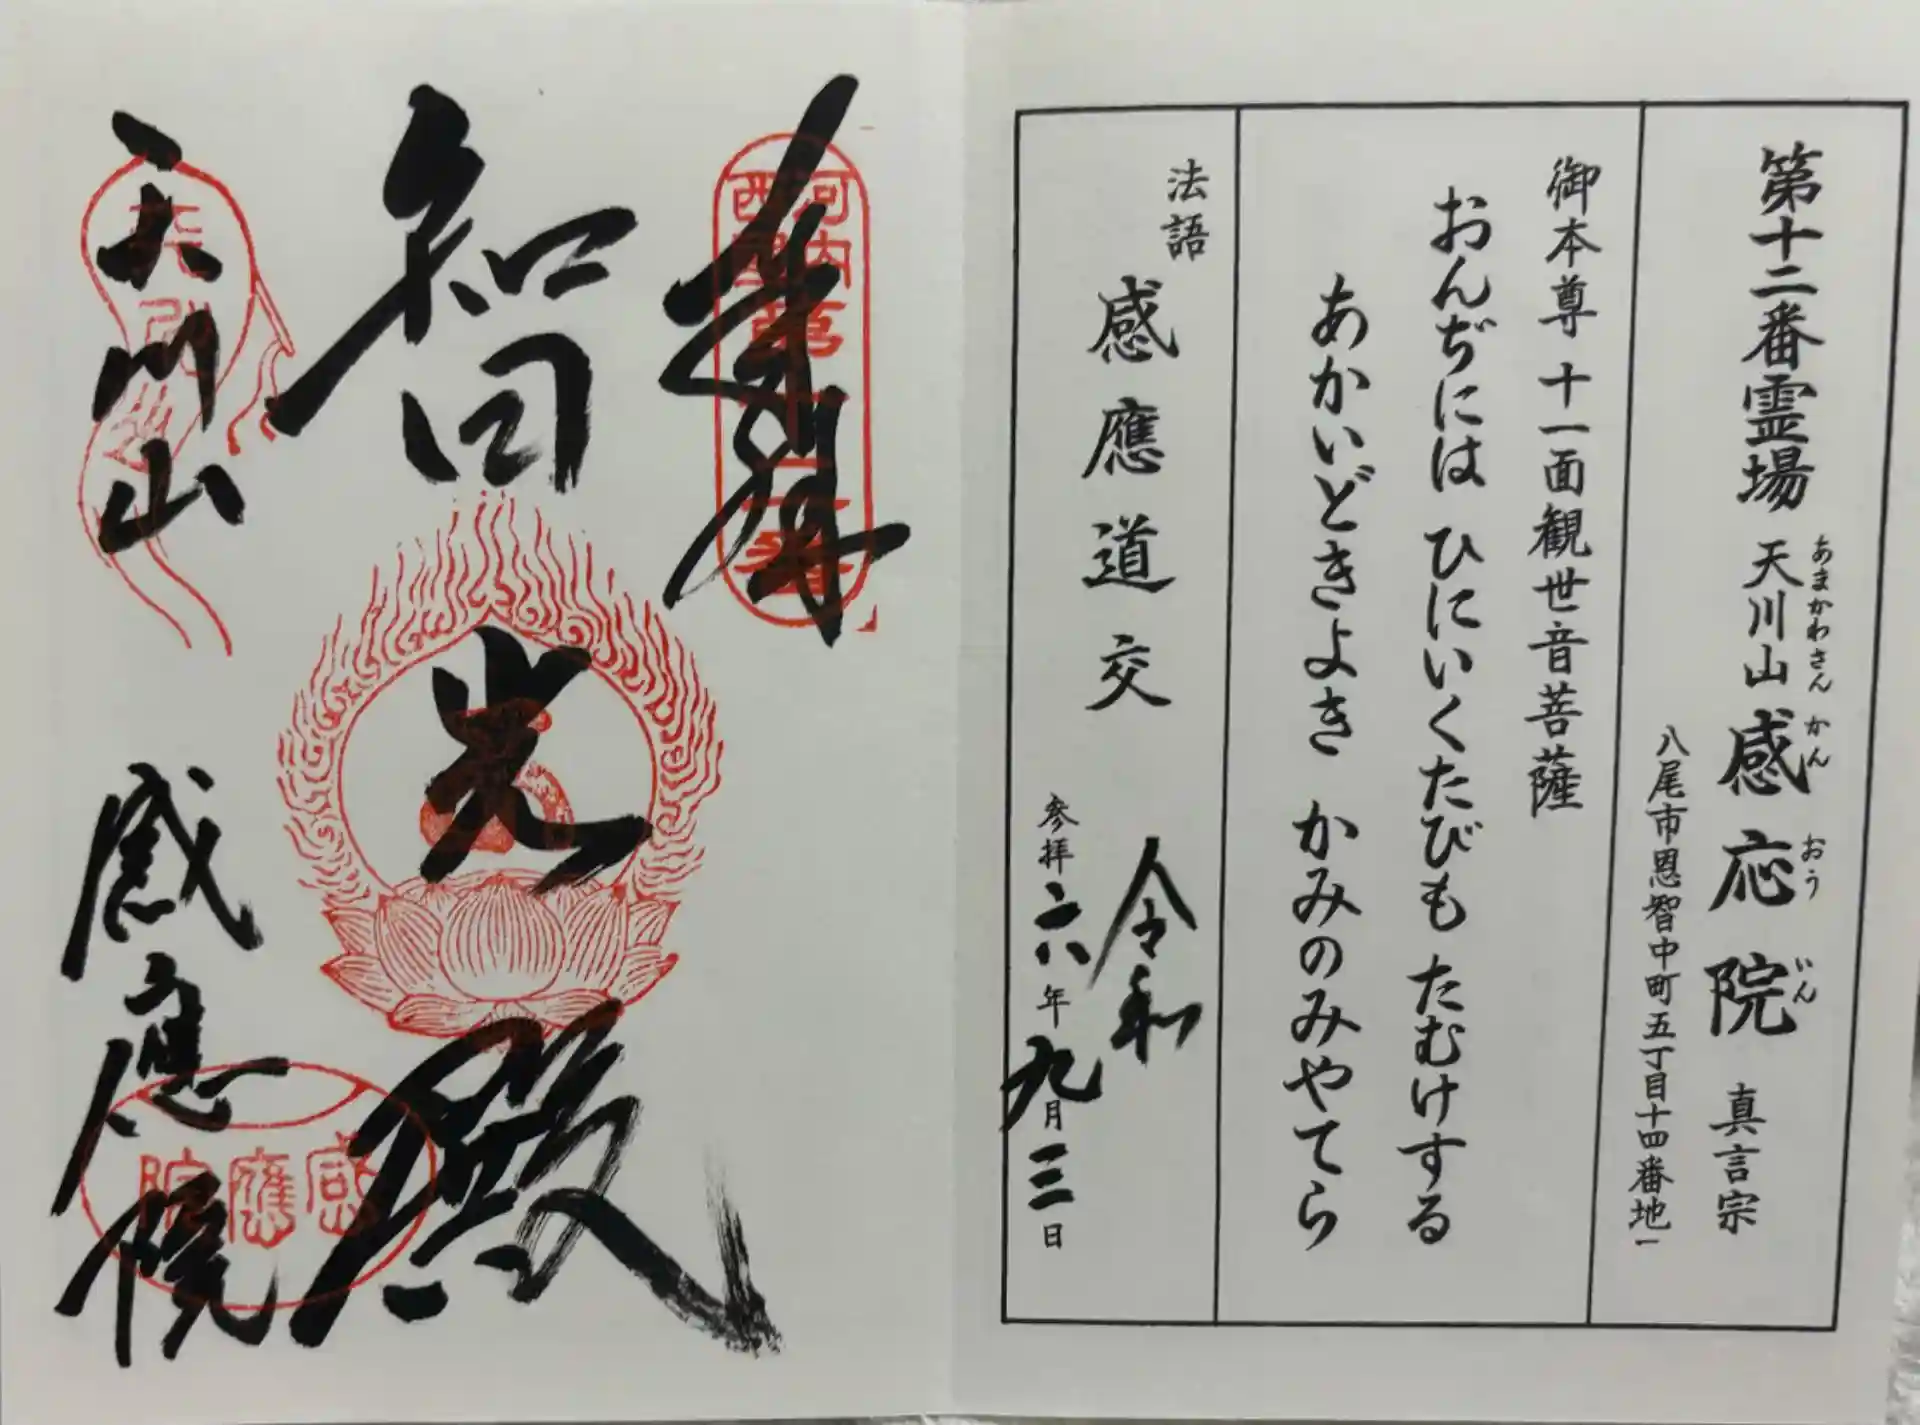 第十二番霊場 天川山 感応院 真言宗
あまかわさん かんおういん
八尾市恩智中町五丁目十四番地一
御本尊 十一面観世音菩薩
おんぢには ひにいくたびも たむけする
あかいどきよき かみのみやてら
法語
感應道交
令和
参拝 六年九月三日
奉拝
河内西國第十二番
智光殿
天川山
感應院
感應院